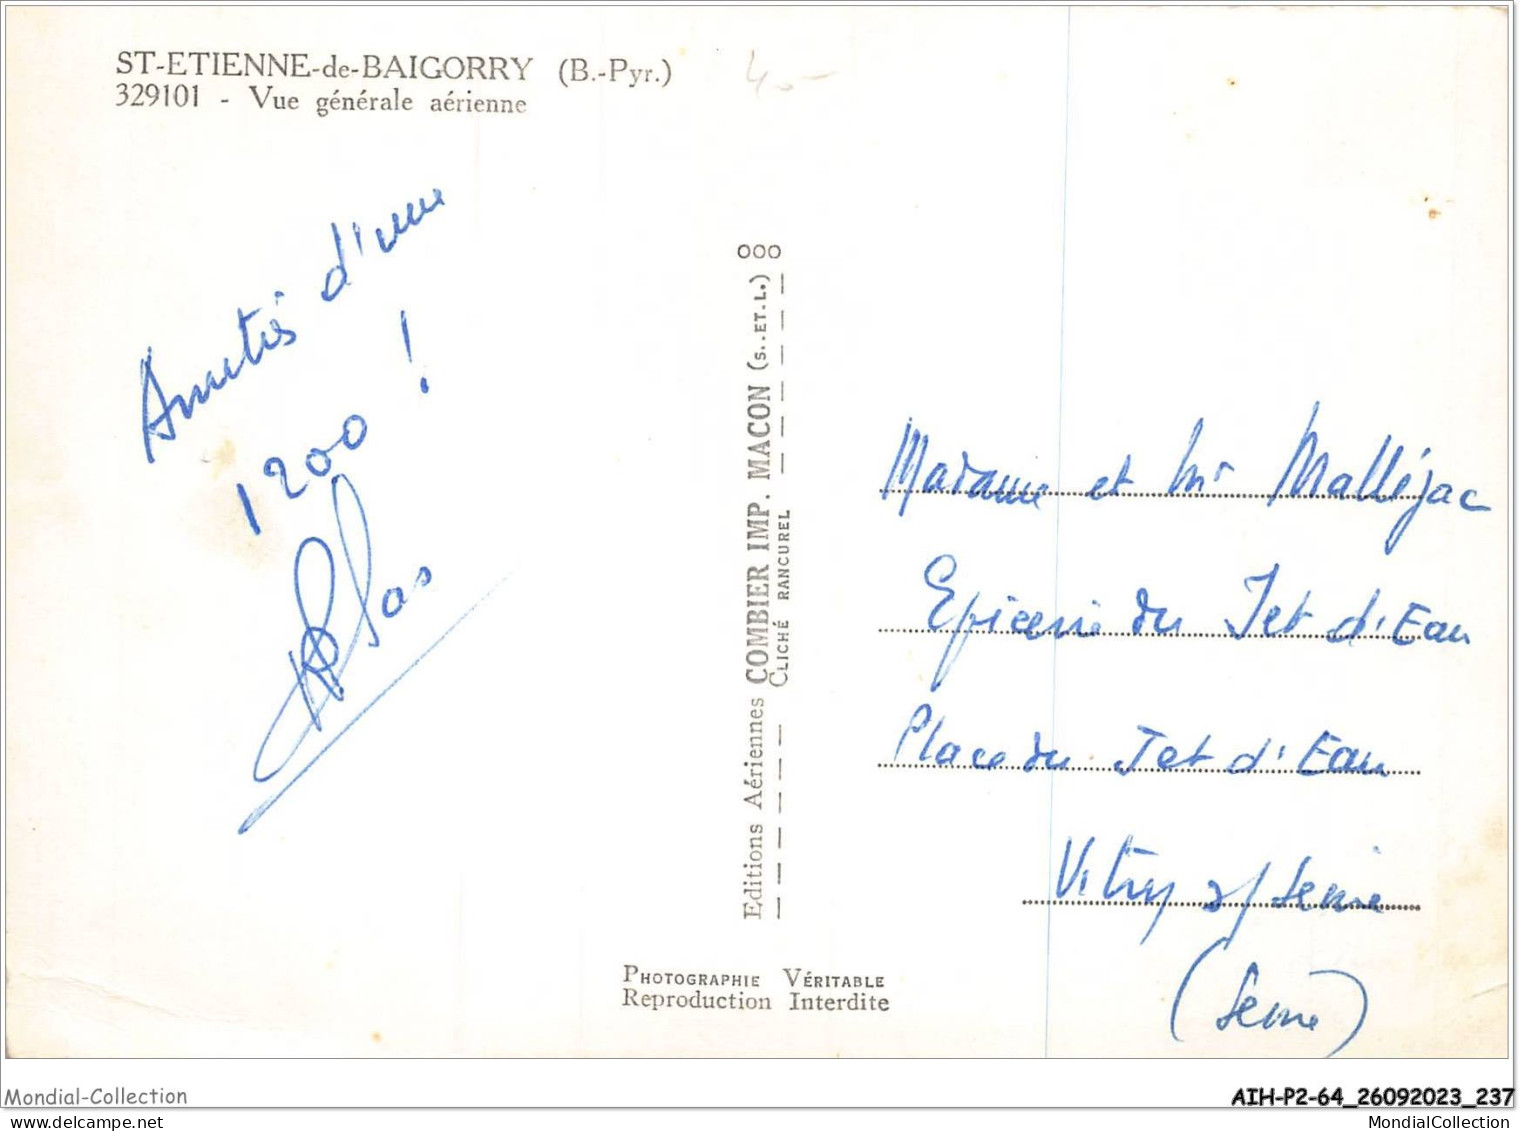 ST-ETIENNE-de-BAIGORRY (B.-Pyr.)
329101 - Vue générale aérienne
40-
Amitiés d'une
1200 !
Editions Aériennes COMBIER IMP. MACON (S.-ET-L.) 000
CLICHÉ RANCUREL
Madame et Mr Malléjac
Epicerie du Jet d'Eau
Place du Jet d'Eau
Vitry s/ Seine
(Seine)
PHOTOGRAPHIE VÉRITABLE
Reproduction Interdite
Mondial-Collection
AIH-P2-64_26092023_237
MondialCollection
MondialCollection